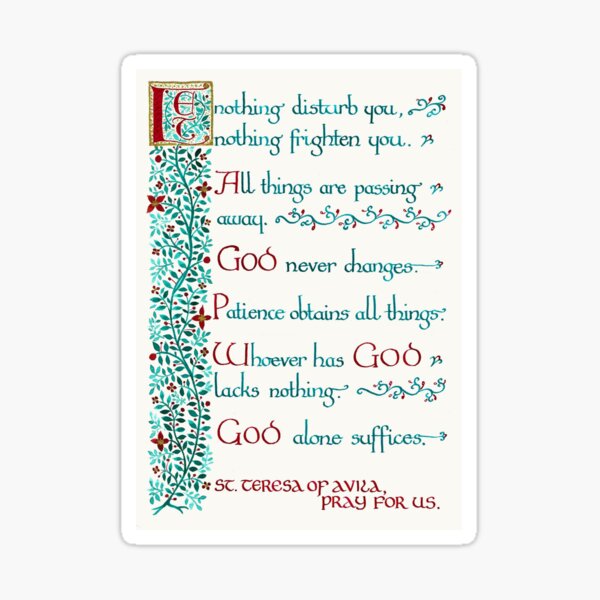 Let nothing disturb you,
nothing frighten you.
All things are passing
away.
God never changes.
Patience obtains all things.
Whoever has God
lacks nothing.
God alone suffices.
St. Teresa of Avila,
pray for us.